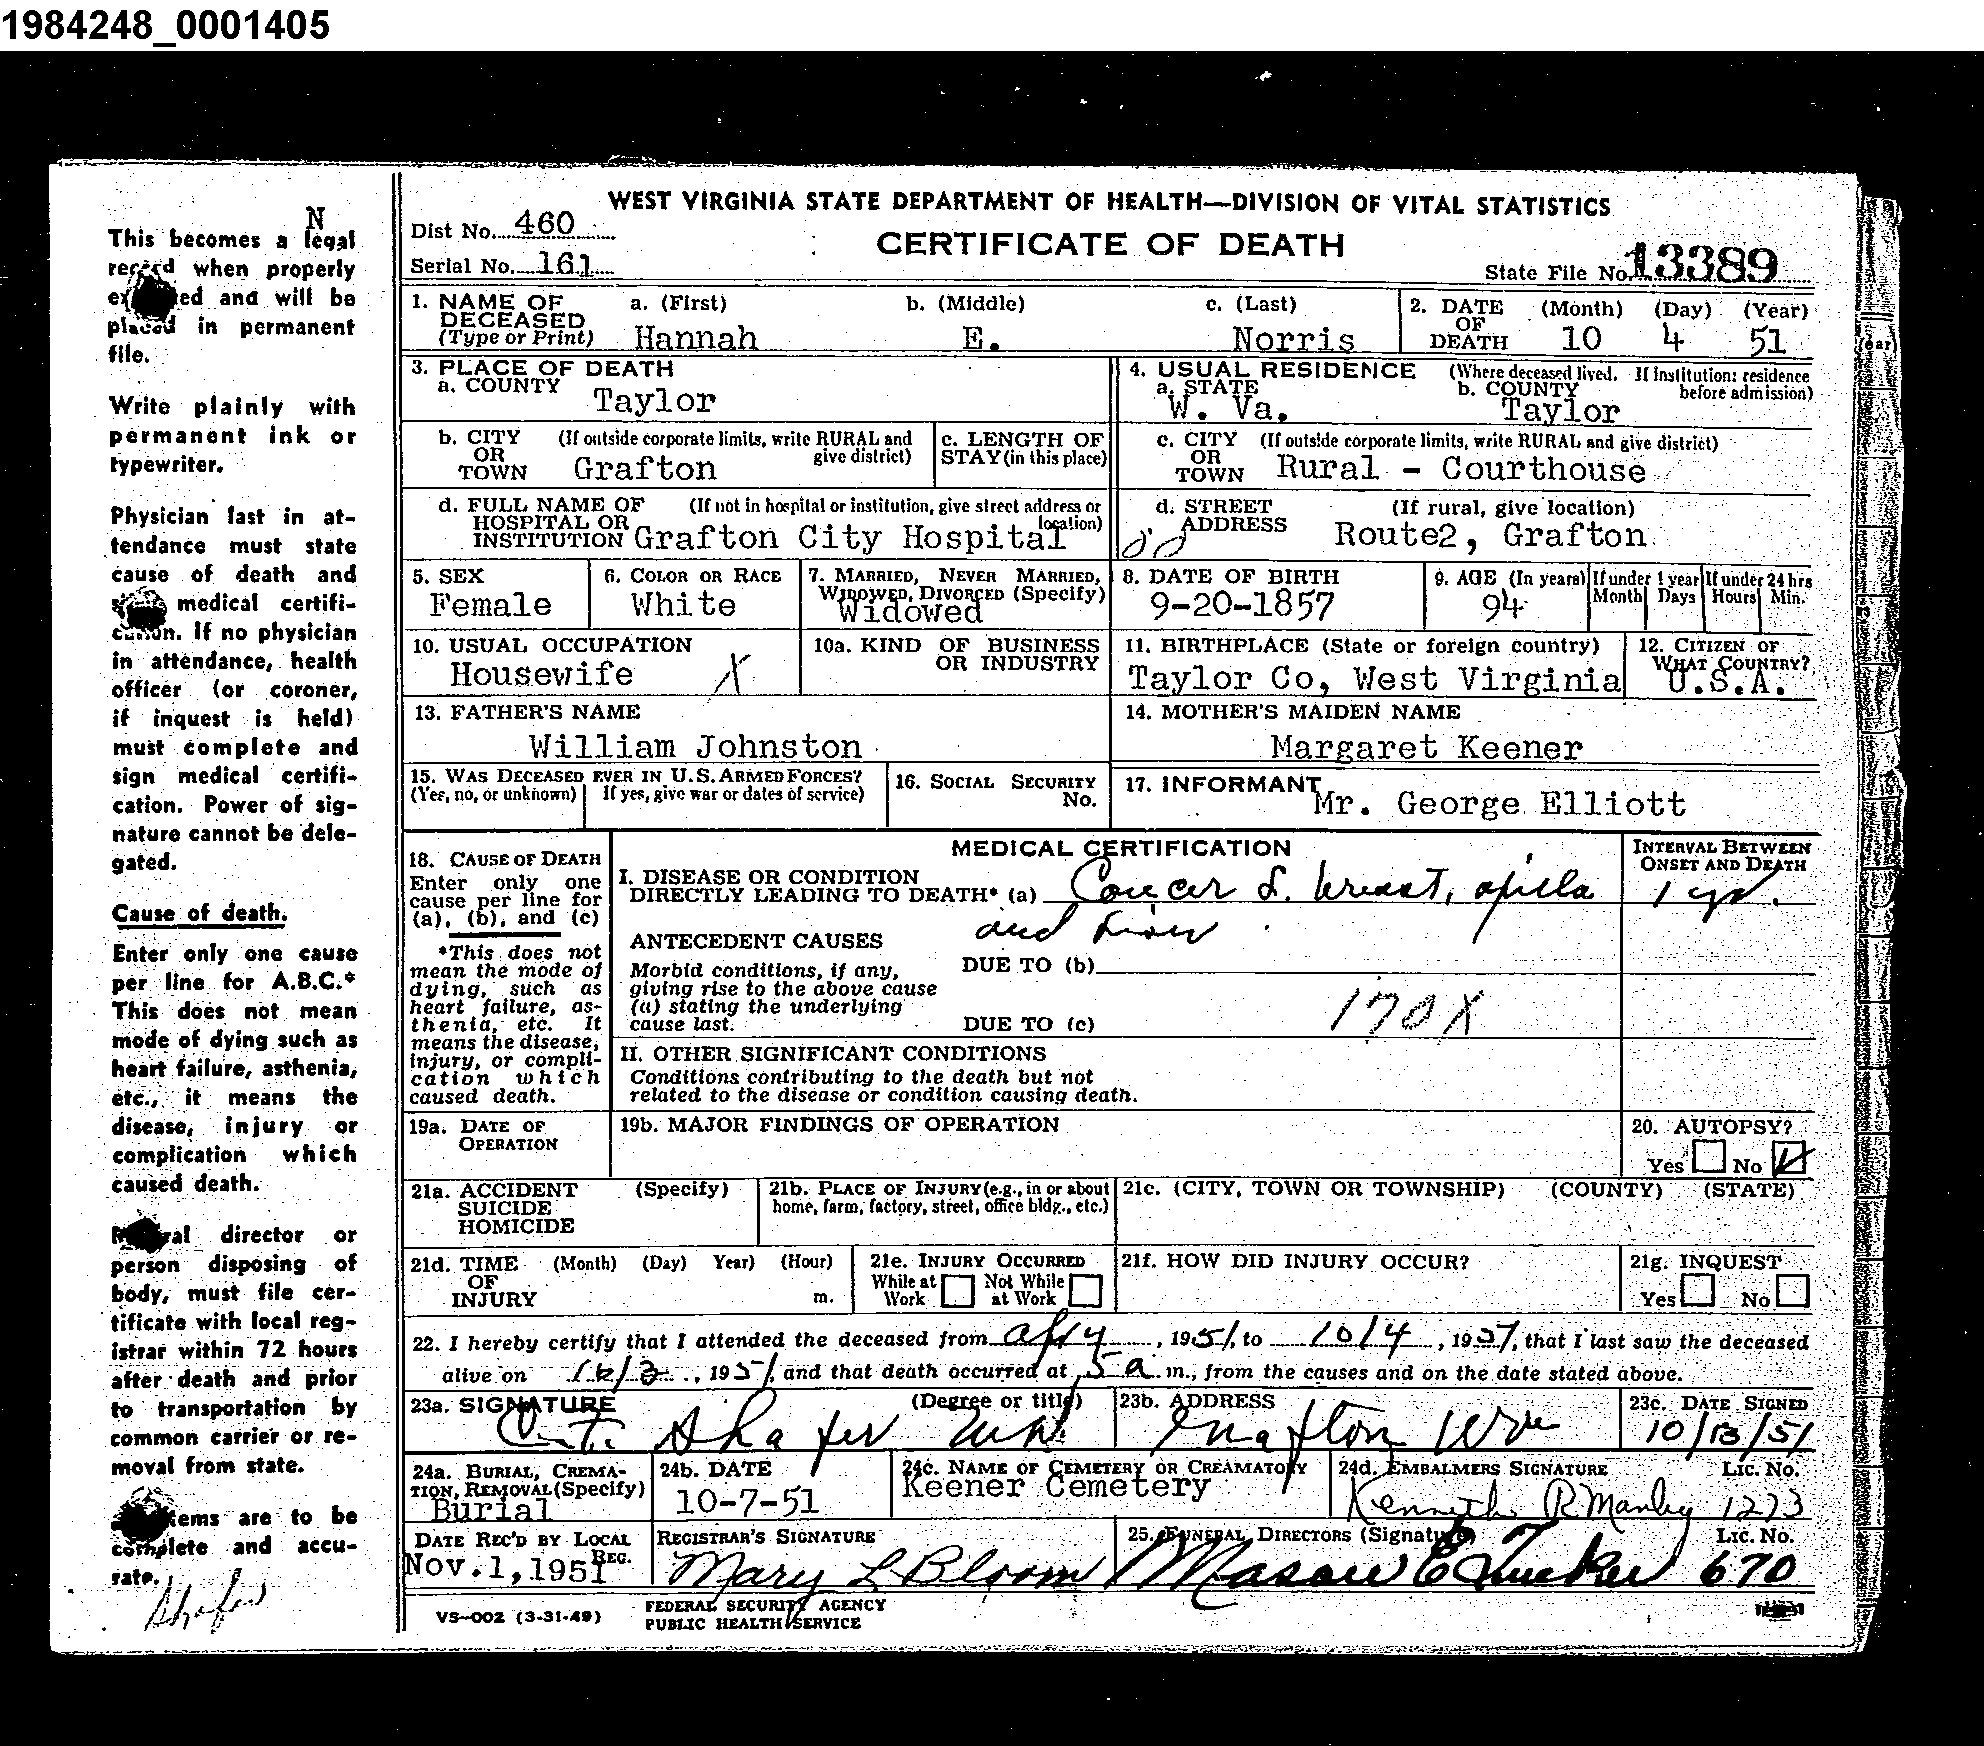 1984248_0001405
N
This becomes a legal
record when properly
ed and will be
placed in permanent
file.
Write plainly with
permanent ink or
typewriter.
Physician last in at-
tendance must state
cause of death and
medical certifi-
cation. If no physician
in attendance, health
officer (or coroner,
if inquest is held)
must complete and
sign medical certifi-
cation. Power of sig-
nature cannot be dele-
gated.
Cause of death.
Enter only one cause
per line for A.B.C.*
This does not mean
mode of dying such as
heart failure, asthenia,
etc., it means the
disease, injury or
complication which
caused death.
director or
person disposing of
body, must file cer-
tificate with local reg-
istrar within 72 hours
after death and prior
to transportation by
common carrier or re-
moval from state.
are to be
complete and accu-
rate.
Shafer
WEST VIRGINIA STATE DEPARTMENT OF HEALTH—DIVISION OF VITAL STATISTICS
Dist No. 460
CERTIFICATE OF DEATH
Serial No. 161
State File No. 13389
1. NAME OF DECEASED (Type or Print) a. (First) b. (Middle) c. (Last)
Hannah E. Norris
2. DATE OF DEATH (Month) (Day) (Year)
10 4 51
3. PLACE OF DEATH
a. COUNTY Taylor
4. USUAL RESIDENCE (Where deceased lived. If institution: residence before admission)
a. STATE W. Va. b. COUNTY Taylor
b. CITY OR TOWN (If outside corporate limits, write RURAL and give district)
Grafton
c. LENGTH OF STAY (in this place)
c. CITY OR TOWN (If outside corporate limits, write RURAL and give district)
Rural - Courthouse
d. FULL NAME OF HOSPITAL OR INSTITUTION (If not in hospital or institution, give street address or location)
Grafton City Hospital
d. STREET ADDRESS (If rural, give location)
Route2, Grafton
5. SEX Female
6. COLOR OR RACE White
7. MARRIED, NEVER MARRIED, WIDOWED, DIVORCED (Specify) Widowed
8. DATE OF BIRTH 9-20-1857
9. AGE (In years) 94 If under 1 year Month Days If under 24 hrs Hours Min.
10. USUAL OCCUPATION Housewife X
10a. KIND OF BUSINESS OR INDUSTRY
11. BIRTHPLACE (State or foreign country) Taylor Co, West Virginia
12. CITIZEN OF WHAT COUNTRY? U.S.A.
13. FATHER'S NAME
William Johnston
14. MOTHER'S MAIDEN NAME
Margaret Keener
15. WAS DECEASED EVER IN U.S. ARMED FORCES?
(Yes, no, or unknown) If yes, give war or dates of service)
16. SOCIAL SECURITY No.
17. INFORMANT Mr. George Elliott
18. CAUSE OF DEATH
Enter only one
cause per line for
(a), (b), and (c)
*This does not
mean the mode of
dying, such as
heart failure, as-
thenia, etc. It
means the disease,
injury, or compli-
cation which
caused death.
MEDICAL CERTIFICATION
I. DISEASE OR CONDITION
DIRECTLY LEADING TO DEATH* (a) Cancer L. breast, axilla
and Liver
ANTECEDENT CAUSES
Morbid conditions, if any,
giving rise to the above cause
(a) stating the underlying
cause last.
DUE TO (b)
DUE TO (c)
170X
INTERVAL BETWEEN
ONSET AND DEATH
1 yr.
II. OTHER SIGNIFICANT CONDITIONS
Conditions contributing to the death but not
related to the disease or condition causing death.
19a. DATE OF OPERATION
19b. MAJOR FINDINGS OF OPERATION
20. AUTOPSY?
Yes No
21a. ACCIDENT SUICIDE HOMICIDE (Specify)
21b. PLACE OF INJURY (e.g., in or about home, farm, factory, street, office bldg., etc.)
21c. (CITY, TOWN OR TOWNSHIP) (COUNTY) (STATE)
21d. TIME OF INJURY (Month) (Day) Year) (Hour) m.
21e. INJURY OCCURRED
While at Work Not While at Work
21f. HOW DID INJURY OCCUR?
21g. INQUEST
Yes No
22. I hereby certify that I attended the deceased from , 1951, to 10/4, 1951, that I last saw the deceased
alive on 10/3, 1951, and that death occurred at 5 a m., from the causes and on the date stated above.
23a. SIGNATURE (Degree or title)
Shafer MD
23b. ADDRESS
Grafton WVa
23c. DATE SIGNED
10/13/51
24a. BURIAL, CREMATION, REMOVAL (Specify)
Burial
24b. DATE
10-7-51
24c. NAME OF CEMETERY OR CREAMATORY
Keener Cemetery
24d. EMBALMERS SIGNATURE Lic. No.
Kenneth R Manley 1273
DATE REC'D BY LOCAL REG.
Nov.1,1951
REGISTRAR'S SIGNATURE
Mary L Bloom
25. FUNERAL DIRECTORS (Signature) Lic. No.
Mason E Tucker 670
VS-002 (3-31-49)
FEDERAL SECURITY AGENCY
PUBLIC HEALTH SERVICE